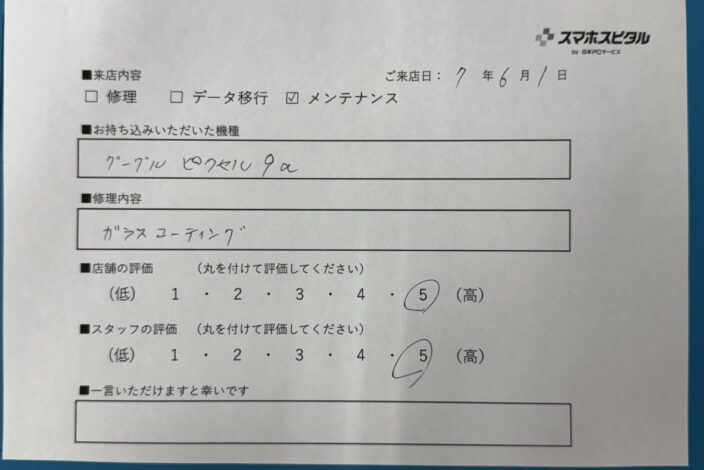 スマホスピタル
by 日本PCサービス
■来店内容 ご来店日: 7 年 6 月 1 日
□ 修理 □ データ移行 ☑ メンテナンス
■お持ち込みいただいた機種
グーグル ピクセル 9a
■修理内容
ガラスコーティング
■店舗の評価 (丸を付けて評価してください)
(低) 1 ・ 2 ・ 3 ・ 4 ・ 5 (高)
■スタッフの評価 (丸を付けて評価してください)
(低) 1 ・ 2 ・ 3 ・ 4 ・ 5 (高)
■一言いただけますと幸いです